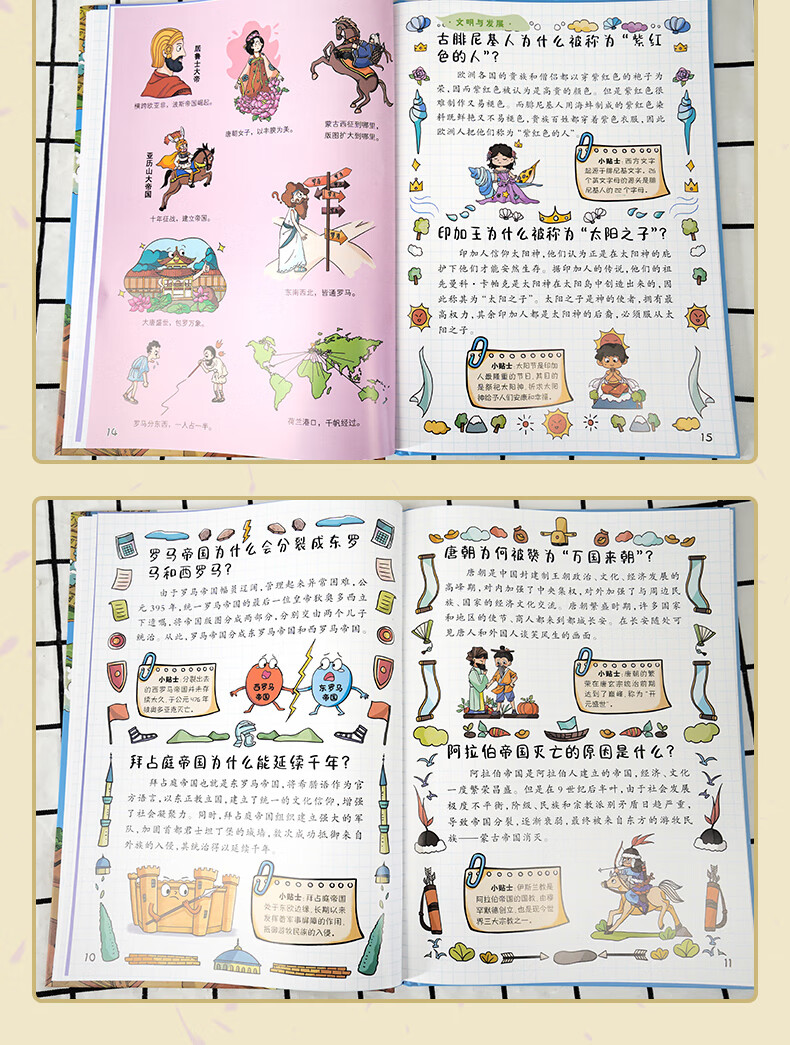 居鲁士大帝
横跨欧亚非，波斯帝国崛起。
唐朝女子，以丰腴为美。
蒙古西征到哪里，
版图扩大到哪里。
亚历山大帝国
十年征战，建立帝国。
东南西北，皆通罗马。
大唐盛世，包罗万象。
罗马分东西，一人占一半。
荷兰港口，千帆经过。
14
文明与发展
古腓尼基人为什么被称为“紫红
色的人”？
欧洲各国的贵族和僧侣都以穿紫红色的袍子为
荣，因而紫红色被认为是高贵的颜色。但是紫红色很
难制作又易褪色。而腓尼基人用海蚌制成的紫红色染
料既鲜艳又不易褪色，贵族百姓都穿着紫色衣服，因此
欧洲人把他们称为“紫红色的人”。
小贴士：西方文字
起源于腓尼基文字，26
个英文字母的源头是腓
尼基人的22个字母。
印加王为什么被称为“太阳之子”？
印加人信仰太阳神，他们认为正是在太阳神的庇
护下他们才能安然生存。据印加人的传说，他们的祖
先曼科·卡帕克是太阳神在太阳岛中创造出来的，因
此称其为“太阳之子”。太阳之子是神的使者，拥有最
高权力，其余印加人都是太阳神的后裔，必须服从太
阳之子。
小贴士：太阳节是印加
人最隆重的节日，其目的
是祭祀太阳神，祈求太阳
神给予人们安康和幸福。
15
罗马帝国为什么会分裂成东罗
马和西罗马？
由于罗马帝国幅员辽阔，管理起来异常困难，公
元395年，统一罗马帝国的最后一位皇帝狄奥多西立
下遗嘱，将帝国版图分成两部分，分别交由两个儿子
统治。从此，罗马帝国分成东罗马帝国和西罗马帝国。
小贴士：分裂出去
的西罗马帝国并未存
续太久，于公元476年
被奥多亚克灭亡。
西罗马
帝国
东罗马
帝国
拜占庭帝国为什么能延续千年？
拜占庭帝国也就是东罗马帝国，将希腊语作为官
方语言，以东正教立国，建立了统一的文化信仰，增强
了社会凝聚力。同时，拜占庭帝国组织建立强大的军
队，加固首都君士坦丁堡的城墙，数次成功抵御来自
外族的入侵，其统治得以延续千年。
小贴士：拜占庭帝国
处于东欧边缘，长期以来
发挥着军事屏障的作用，
抵御游牧民族的入侵。
10
唐朝为何被赞为“万国来朝”？
唐朝是中国封建制王朝政治、文化、经济发展的
高峰期，对内加强了中央集权，对外加强了与周边民
族、国家的经济文化交流。唐朝繁盛时期，许多国家
和地区的使节、商人都来到都城长安。在长安随处可
见唐人和外国人谈笑风生的画面。
小贴士：唐朝的繁
荣在唐玄宗统治前期
达到了巅峰，称为“开
元盛世”。
阿拉伯帝国灭亡的原因是什么？
阿拉伯帝国是阿拉伯人建立的帝国，经济、文化
一度繁荣昌盛。但是在9世纪后半叶，由于社会发展
极度不平衡，阶级、民族和宗教派别矛盾日趋严重，
导致帝国分裂，逐渐衰弱，最终被来自东方的游牧民
族——蒙古帝国消灭。
小贴士：伊斯兰教是
阿拉伯帝国的国教，由穆
罕默德创立，也是现今世
界三大宗教之一。
11